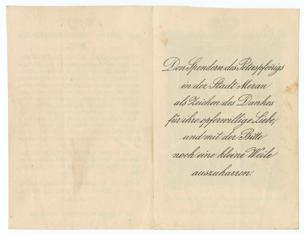 Den Spendern des Peterspfenigs
in der Stadt Meran
als Zeichen des Dankes
für ihre opferwillige Liebe,
und mit der Bitte
noch eine kleine Weile
auszuharren.